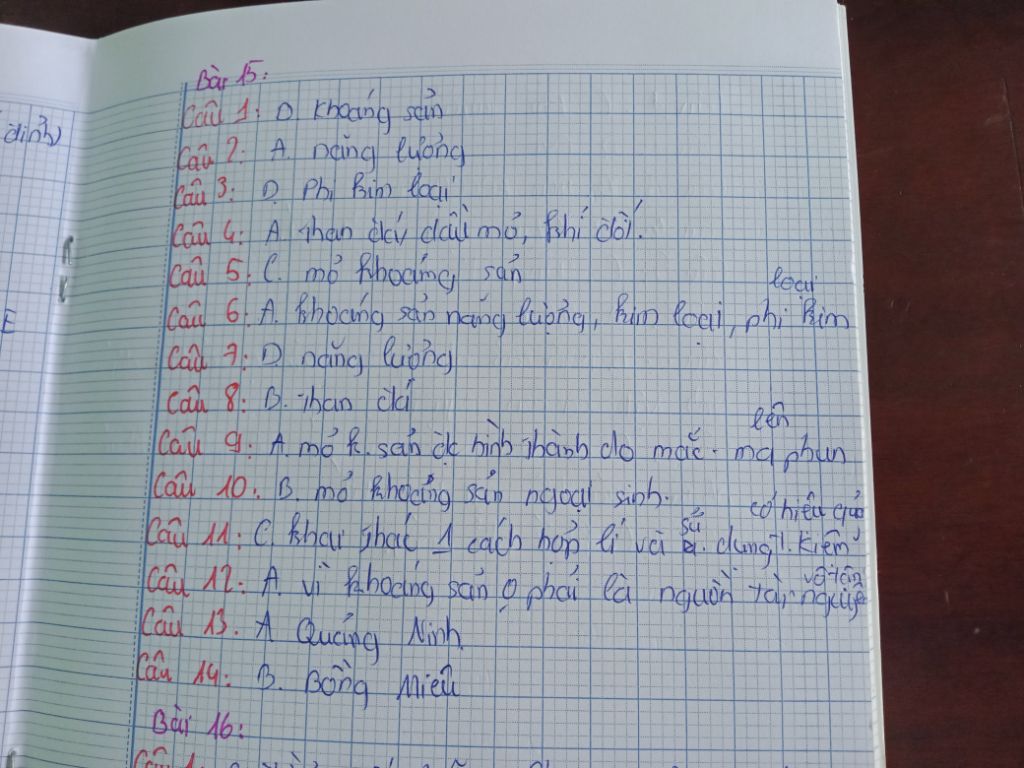 định)
E
Bài 15:
Câu 1: D khoáng sản
Câu 2: A. năng lượng
Câu 3: D. Phi kim loại
Câu 4: A than đá, dầu mỏ, khí đốt.
Câu 5: C. mỏ khoáng sản
Câu 6: A. khoáng sản năng lượng, kim loại, phi kim loại
Câu 7: D năng lượng
Câu 8: B. than đá
Câu 9: A. mỏ k. sản đc hình thành do mắc. ma phun lên
Câu 10: B. mỏ khoáng sản ngoại sinh.
Câu 11: C khai thác 1 cách hợp lí và sử dụng t. kiệm có hiệu quả
Câu 12: A. vì khoáng sản o phải là nguồn tài nguyên vô tận
Câu 13. A Quảng Ninh
Câu 14: B. Bồng Miêu
Bài 16:
Câu 1: